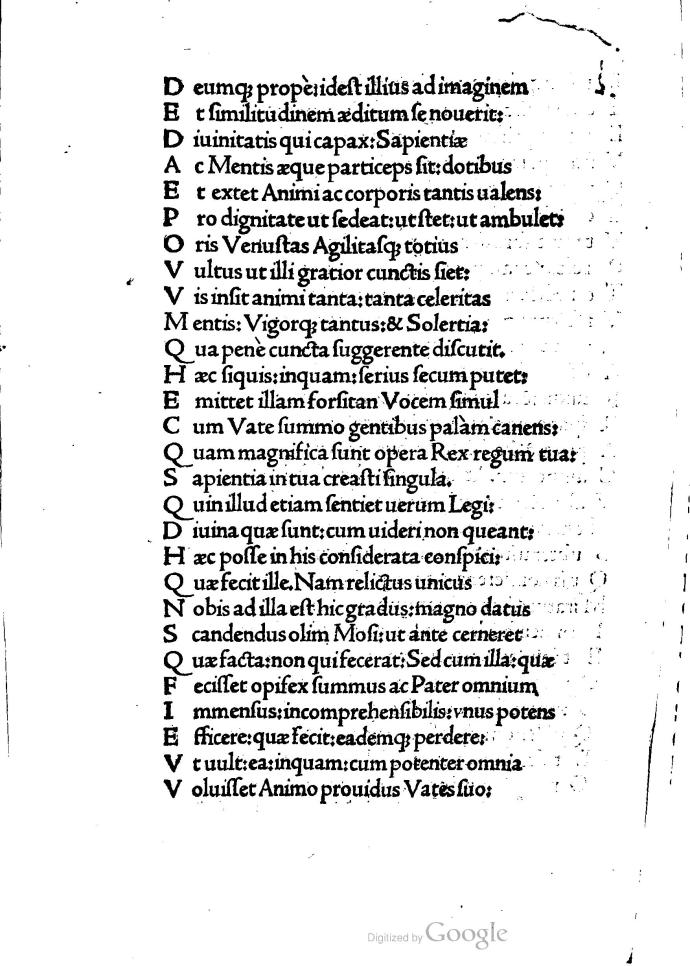 D eumq; propè: idest illius ad imaginem
E t similitudinem æditum se nouerit:
D iuinitatis qui capax: Sapientiæ
A c Mentis æque particeps sit: dotibus
E t extet Animi ac corporis tantis ualens:
P ro dignitate ut sedeat: ut stet: ut ambulet:
O ris Venustas Agilitasq; totius
V ultus ut illi gratior cunctis siet:
V is insit animi tanta: tanta celeritas
M entis: Vigorq; tantus: & Solertia:
Q ua penè cuncta suggerente discutit.
H æc siquis: inquam: serius secum putet:
E mittet illam forsitan Vocem simul
C um Vate summo gentibus palàm canens:
Q uam magnifica sunt opera Rex regum tua:
S apientia in tua creasti singula.
Q uin illud etiam sentiet uerum Legi:
D iuina quæ sunt: cum uideri non queant:
H æc posse in his considerata conspici:
Q uæ fecit ille. Nam relictus unicus
N obis ad illa est hic gradus: magno datus
S candendus olim Mosi: ut ante cerneret
Q uæ facta: non qui fecerat: Sed cum illa: quæ
F ecisset opifex summus ac Pater omnium
I mmensus: incomprehensibilis: vnus potens
E fficere: quæ fecit: eademq; perdere:
V t uult: ea: inquam: cum potenter omnia
V oluisset Animo prouidus Vates suo:
Digitized by Google